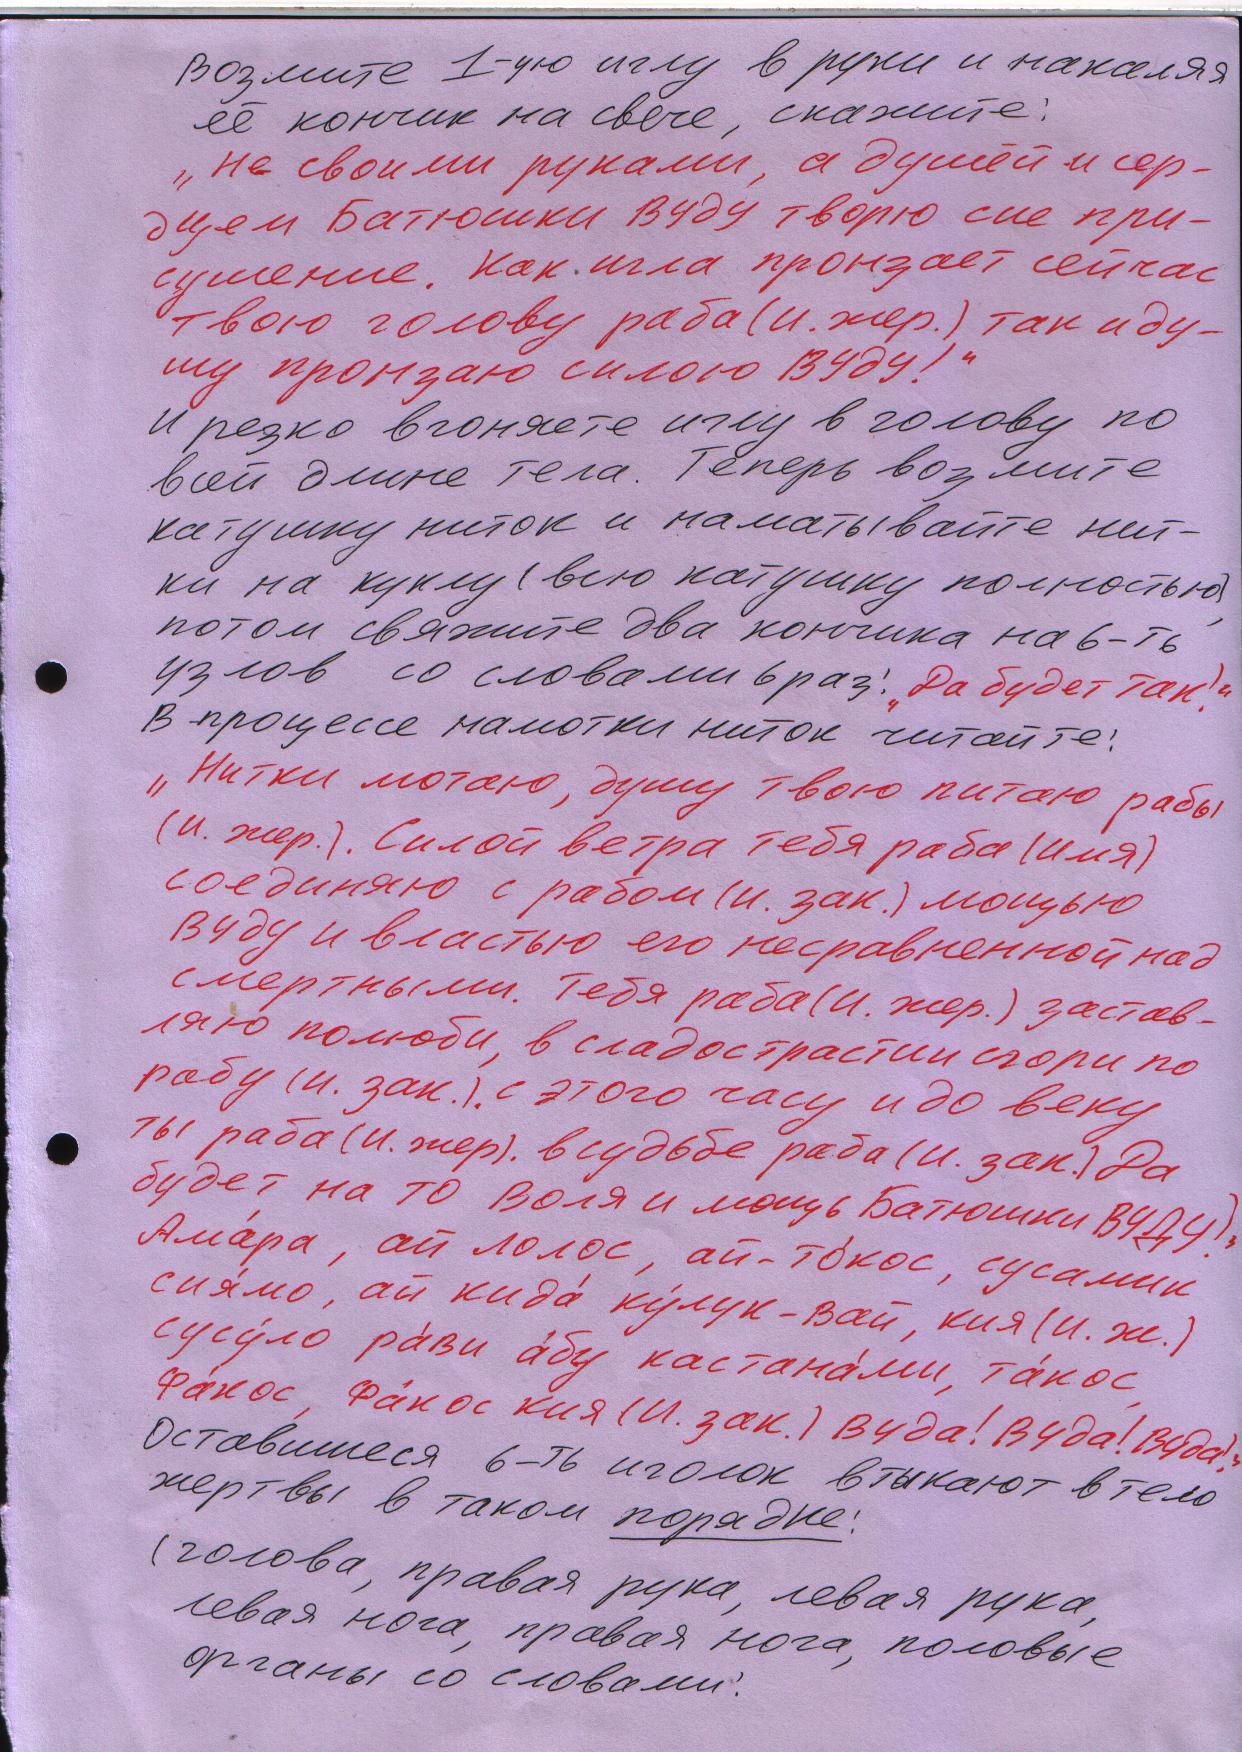 Возмите 1-ую иглу в руки и накаляя
её кончик на свече, скажите:
„Не своими руками, а душей и сер-
дцем Батюшки Вуду творю сие при-
сушение. Как игла пронзает сейчас
твою голову раба (И. жер.) так и ду-
шу пронзаю силою Вуду!“
И резко вгоняете иглу в голову по
всей длине тела. Теперь возмите
катушку ниток и наматывайте нит-
ки на куклу (всю катушку полностью),
потом свяжите два кончика на 6-ть
узлов со словами 6 раз: „Да будет так!“
В процессе намотки ниток читайте:
„Нитки мотаю, душу твою питаю рабы
(И. жер.). Силой ветра тебя раба (Имя)
соединяю с рабом (И. зак.) мощью
Вуду и властью его несравненной над
смертными. Тебя раба (И. жер.) застав-
ляю полюби, в сладострастии сгори по
рабу (И. зак.). с этого часу и до веку
ты раба (И. жер). в судьбе раба (И. зак.) Да
будет на то Воля и мощь Батюшки ВУДУ!“
Ама́ра, ай лолос, ай-то́кос, сусамик
сия́мо, ай кида́ ку́лук-вай, кия (И. ж.)
сусу́ло ра́ви а́бу кастана́ми, та́кос,
Фа́кос, Фа́кос кия (И. зак.) Вуда! Вуда! Вуда!“
Оставшиеся 6-ть иголок втыкают в тело
жертвы в таком порядке:
(голова, правая рука, левая рука,
левая нога, правая нога, половые
органы со словами: